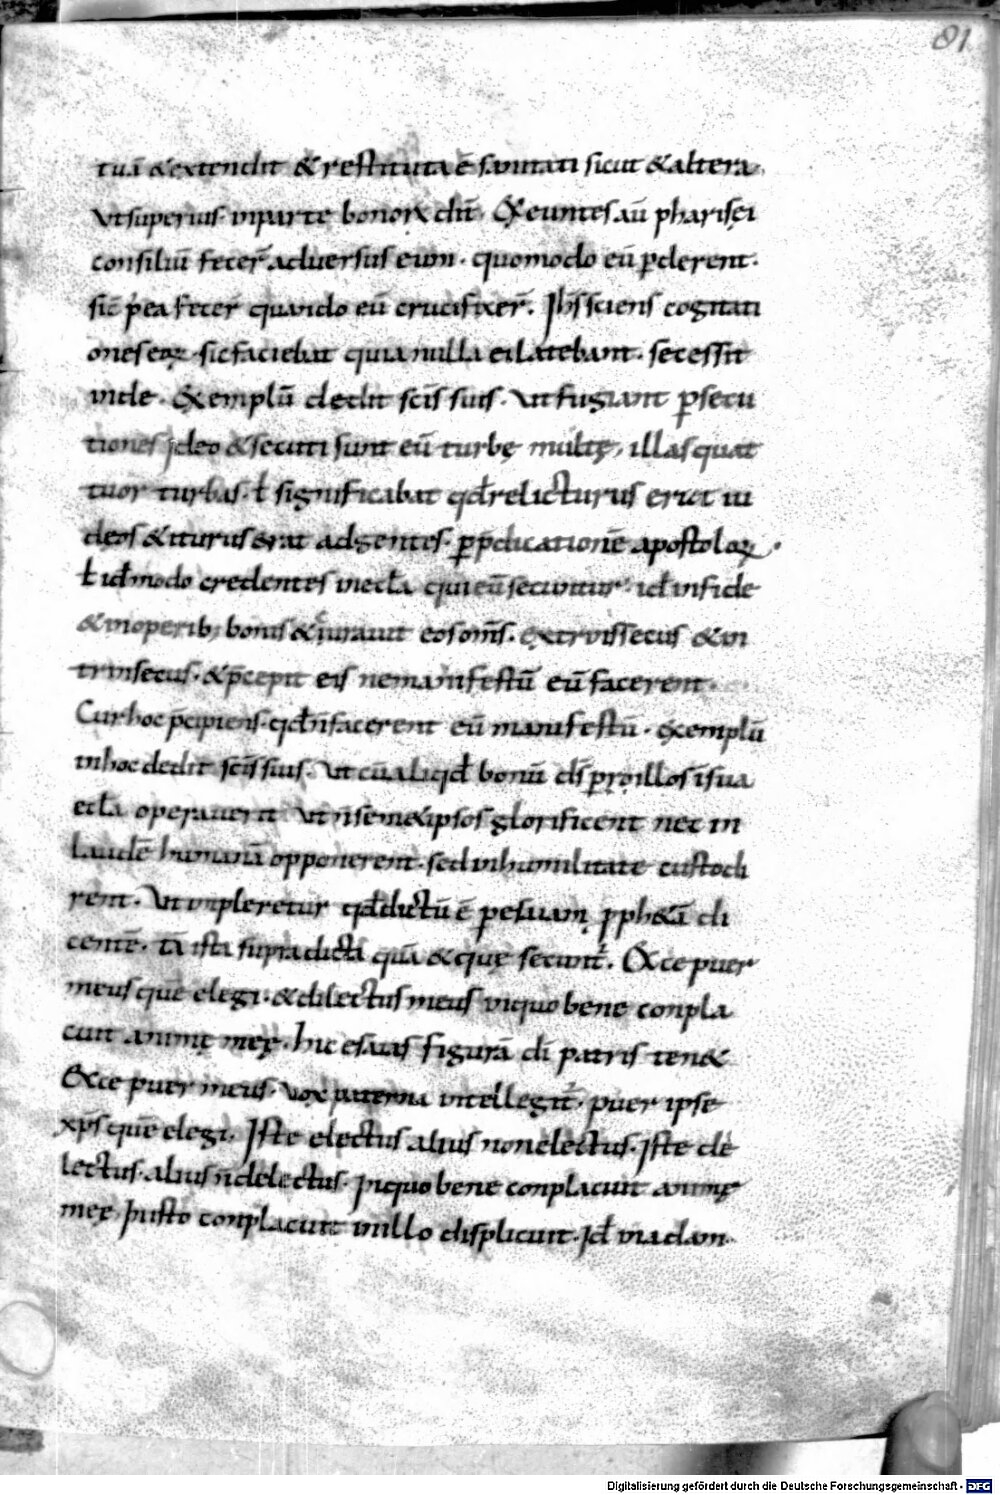 81
tuā &extendit & restituta ē sanitati sicut & altera,
Vt superius in parte bonoꝝ dix̄. Exeuntes aū pharisęi
consiliū fecer̄ adversus eum. quomodo eū ꝑderent.
sic̄ p̄ea fecer̄ quando eū crucifixer̄. Ihs̄ sciens cogitati
ones eoꝝ. sic faciebat quia nulla ei latebant. secessit
inde. Exemplū dedit sc̄is suis. Vt fugiant ꝑsecu
tiones Ideo & secuti sunt eū turbę multę, illas quat
tuor turbas. ł significabat qđ relicturus erat iu
dęos & iturus erat ad gentes. ꝑ p̄dicationē apostoloꝝ.
ł iđ modo credentes in eccła qui eū secuntur. iđ in fide
& in operib; bonis & curavit eos om̄s. extrinsecus & in
trinsecus. & p̄cepit eis ne manifestū eū facerent.
Cur hoc p̄cipiens. qđ n̄ facerent eū manifestū. exemplū
in hoc dedit sc̄is suis. Vt cū aliqđ bonū ds̄ ꝑ illos in sua
eccła operaverit Vt n̄ semetipsos glorificent nec in
laudē humanā opponerent. sed in humilitate custodi
rent. Vt impleretur qđ dictū ē ꝑ esaiam ꝓph&ā di
centē. tā ista supradicta quā & quę secunt̄. Ecce puer
meus quē elegi. & dilectus meus in quo bene conpla
cuit animę meę. hic esaias figurā di patris ten&
Ecce puer meus. vox paterna intellegit̄. puer ipse
xp̄s quē elegi. Iste electus alius non electus. Iste de
lectus. alius n̄ delectus. In quo bene conplacuit animę
meę, In isto conplacuit in illo displicuit. Iđ in adam
Digitalisierung gefördert durch die Deutsche Forschungsgemeinschaft - DFG